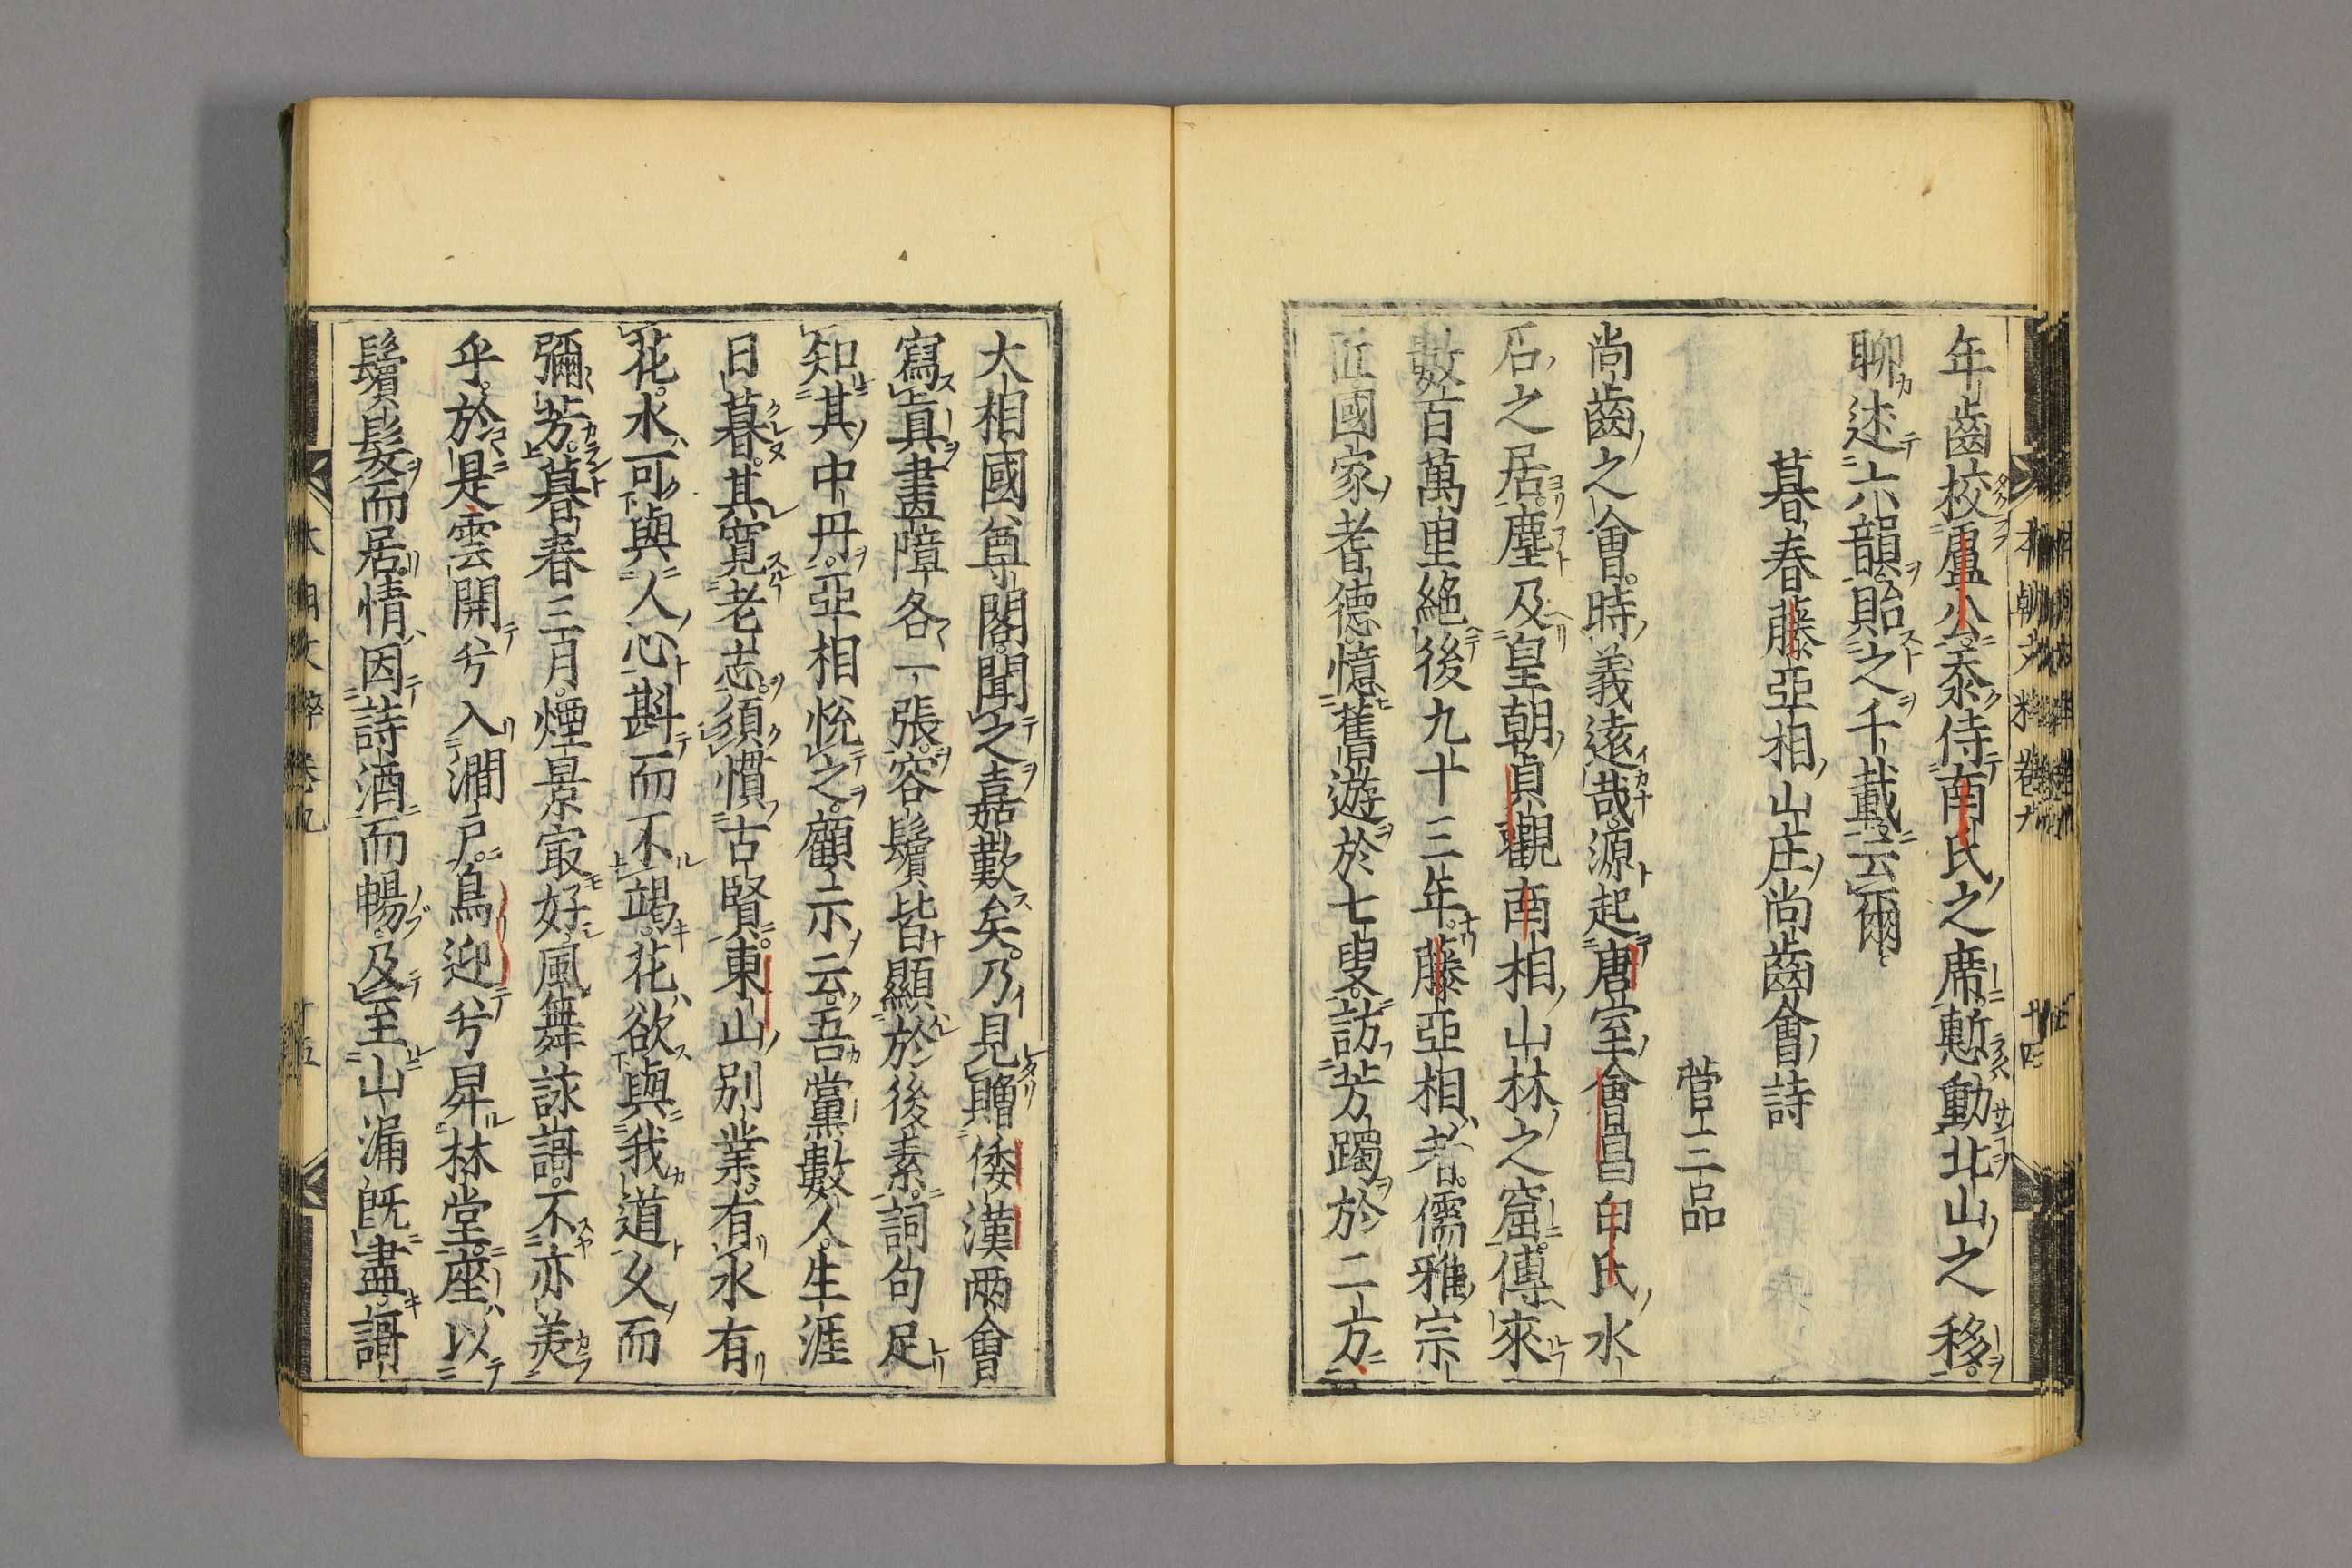 年齒校盧公。忝侍南氏之席慙動北山之移。
聊述六韻。貽之千載。云爾。
暮春藤亞相山庄尚齒會詩
菅三品
尚齒之會。時義遠哉。源起唐室會昌白氏水
石之居。塵及皇朝貞觀南相山林之窟。傳來
數百萬里絶後九十三年。藤亞相者。儒雅宗
匠國家耆德憶舊遊於七叟。訪芳躅於二方。
大相國尊閤。聞之嘉歎矣。乃見贈倭漢兩會
寫眞畫障各一張。容鬢皆顯於後素。詞句足
知其中丹。亞相恱之。顧示云。吾黨數人。生涯
日暮。其寛老志。須慣古賢。東山別業。有水有
花。水可與人心斟而不竭。花欲與我道乂而
彌芳。暮春三月。煙景㝡好。風舞詠謌。不亦美
乎。於是雲開兮入澗戸。鳥迎兮昇林堂。座以
鬢髮而居。情因詩酒而暢。及至山漏既盡。謌
本朝文粹卷九
十四
本朝文粹卷九
十五